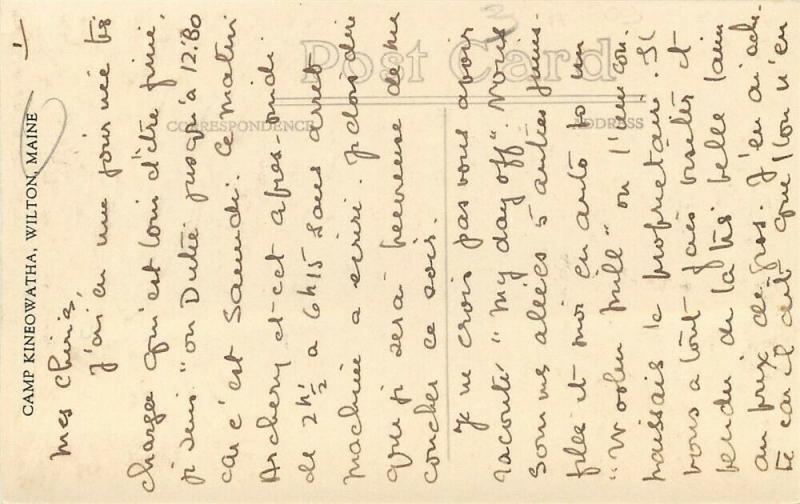 Post Card
CORRESPONDENCE
ADDRESS
CAMP KINEOWATHA, WILTON, MAINE
1
Mes Chéris,
J'ai eu une journée très
chargée qu'est loin d'être finie,
je suis "on Dutie" jusqu'à 12.30
car c'est Samedi. Ce matin
Archery et cet après-midi
de 2h½ a 6h15 sans arret
machine a ecrire. Je dois dire
que je serai heureuse de me
coucher ce soir.
Je ne crois pas vous avoir
raconté "my day off". Nous
sommes allées 5 autres jeunes
filles et moi en auto to un
"Woolen mill" ou l'une con
naissais le proprietaire. Il
nous a tout fait visiter et
vendu de la très belle laine
au prix de gros. J'en ai ache
té car il dit que l'on n'en